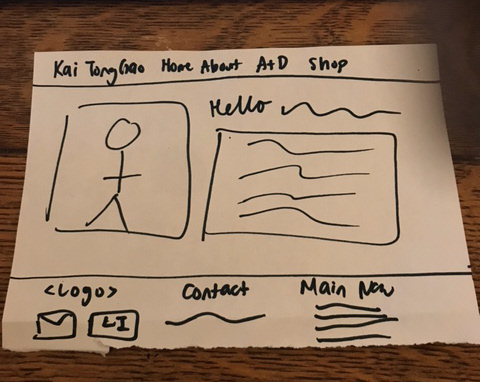 Kai TongGao Home About A+D Shop
Hello
<Logo> Contact Main Nav
LI